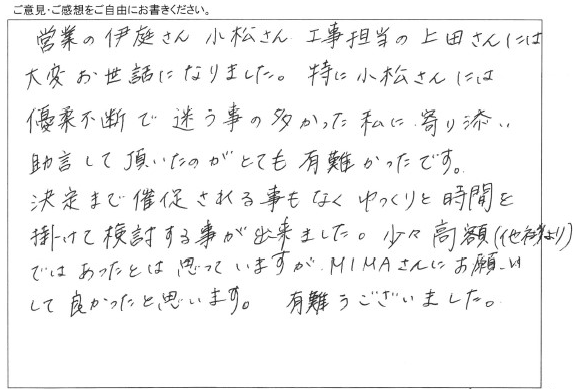 ご意見・ご感想をご自由にお書きください。
営業の伊庭さん 小松さん 工事担当の上田さんには
大変お世話になりました。特に小松さんには
優柔不断で迷う事の多かった私に寄り添い
助言して頂いたのがとても有難かったです。
決定まで催促される事もなくゆっくりと時間を
掛けて検討する事が出来ました。少々高額(他社より)
ではあったとは思っていますが、MIMAさんにお願い
して良かったと思います。 有難うございました。